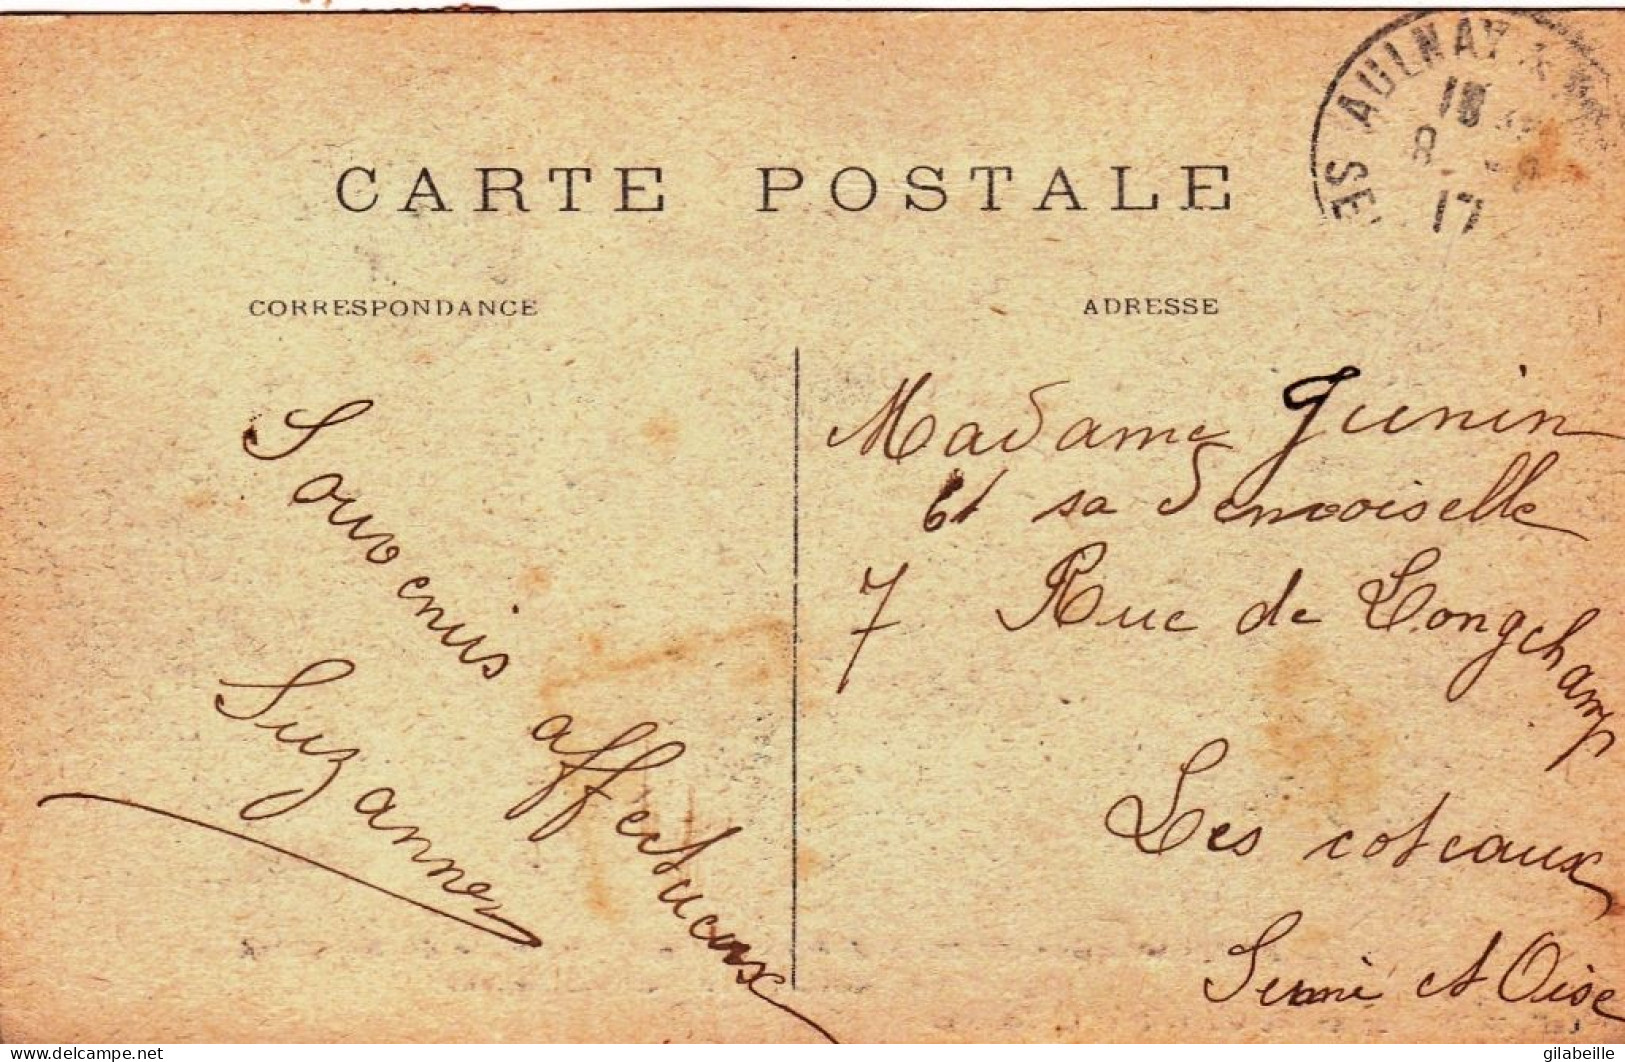 AULNAY
SE
18
8
17
CARTE POSTALE
CORRESPONDANCE
ADRESSE
Souvenis
affectueux
Suzanne
Madame Junin
et sa Demooiselle
7 Rue de Longchamp
Les coteaux
Seine et Oise
delcampe.net
gilabeille